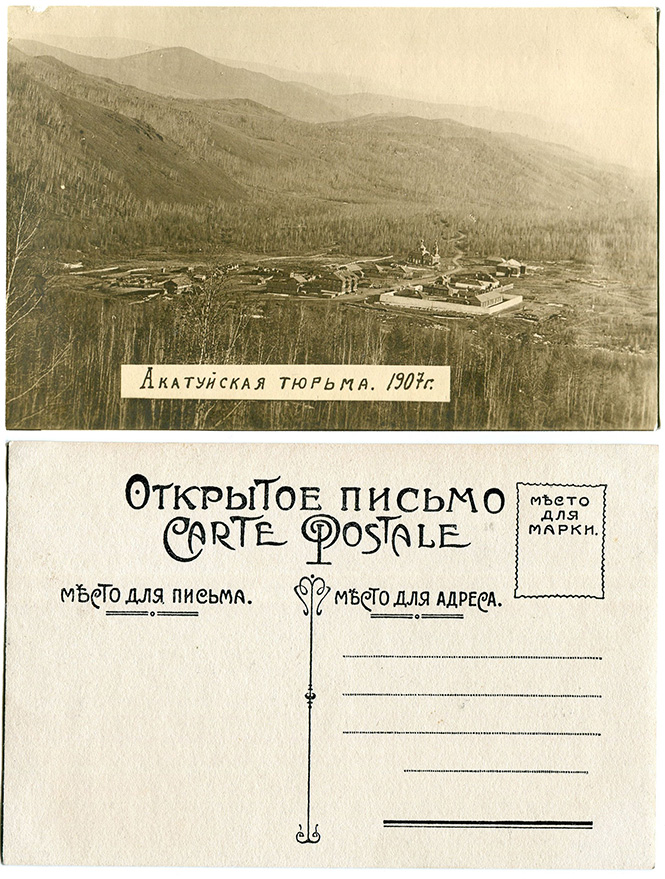 Акатуйская тюрьма. 1907г.
Открытое письмо
Carte Postale
Мѣсто
для
марки.
Мѣсто для письма.
Мѣсто для адреса.